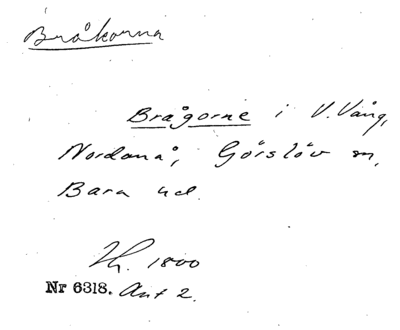 Bråkorna
Brågorne i V. Vång,
Nordanå, Görslöv sn,
Bara hd.
1800
Nr 6318. Akt 2.